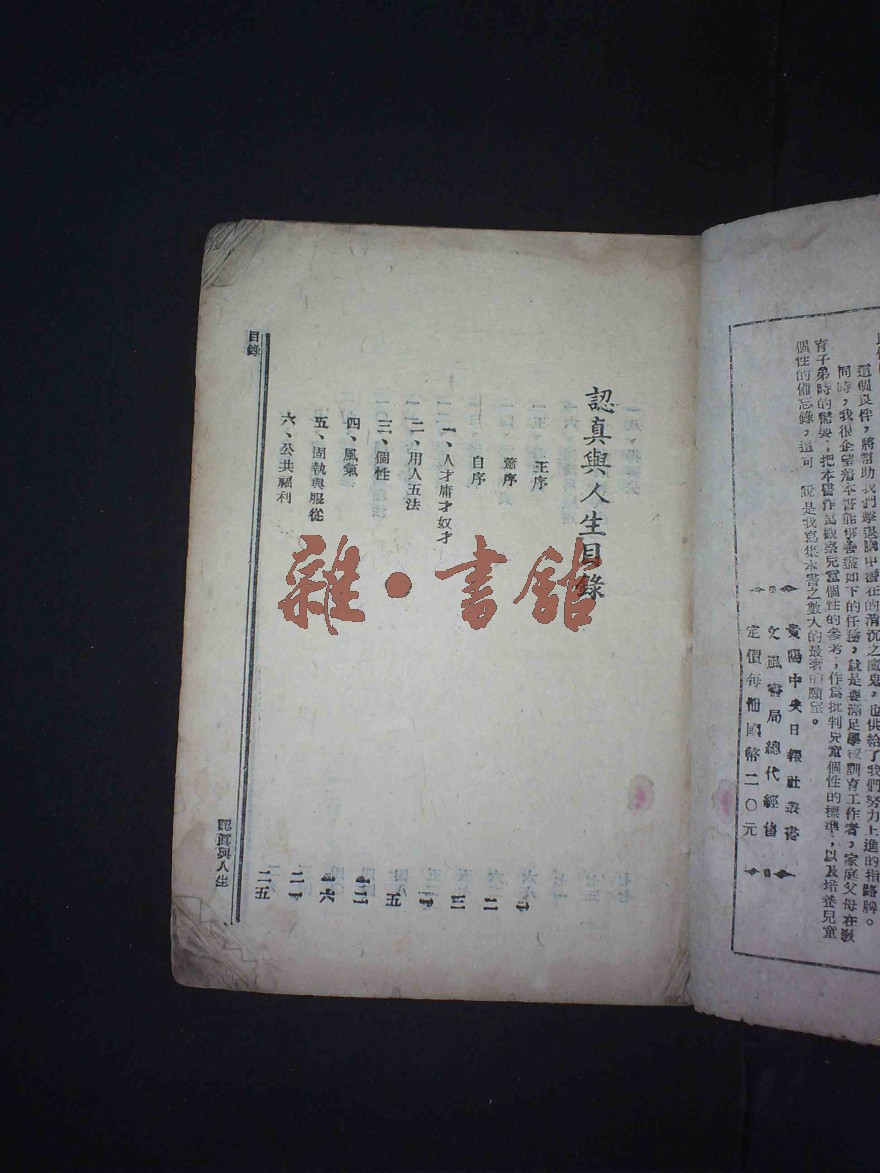 這個良伴，將幫助我們擊退胸中潛在的消沉之魔鬼，也供給了我們努力上進的指路牌。
同時，我很企望着本書能够善盡如下的任務，就是要滿足學校訓育工作者，家庭父母在教
育子弟時的需要；把本書作爲觀察兒童個性的參考；作爲批判兒童個性的標準，以及培養兒童
個性的備忘錄，這可說是我寫集本書之數人的最奢的願望。
貴陽中央日報社叢書
文風書局總代經售
定價每冊國幣二〇元
認真與人生目錄
王序
蕭序 二
自序 三
一、人才庸才奴才
二、用人五法 五
三、個性
四、風氣
五、固執與服從
六、公共福利 二五
目錄
認真與人生
雜·書館